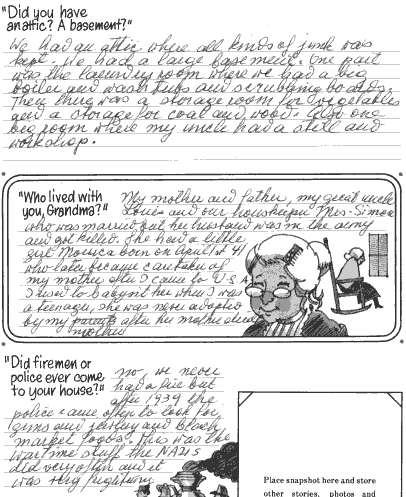 "Did you have
an attic? A basement?"
We had an attic where all kinds of junk was
kept. We had a large basement. One part
was the laundry room where we had a big
boiler and wash tubs and scrubbing boards.
There was a storage room for vegetables
and a storage for coal and wood. Also one
big room where my uncle had a still and
workshop.
"Who lived with
you, Grandma?"
My mother and father, my great uncle
Louis and our housekeeper Mrs. Simon
who was married but her husband was in the army
and got killed. She had a little
girl Monica born on April 1st 41
who later became caretaker of
my mother after I came to U.S.A
I used to babysit her when I was
a teenager, she was never adopted
by my parents after her mother died
mother
"Did firemen or
police ever come
to your house?"
no, we never
had a fire but
after 1939 the
police came often to look for
guns and jewelry and black
market foods. This was the
wartime stuff the NAZIS
did very often and it
was very frightening
Place snapshot here and store
other stories, photos and